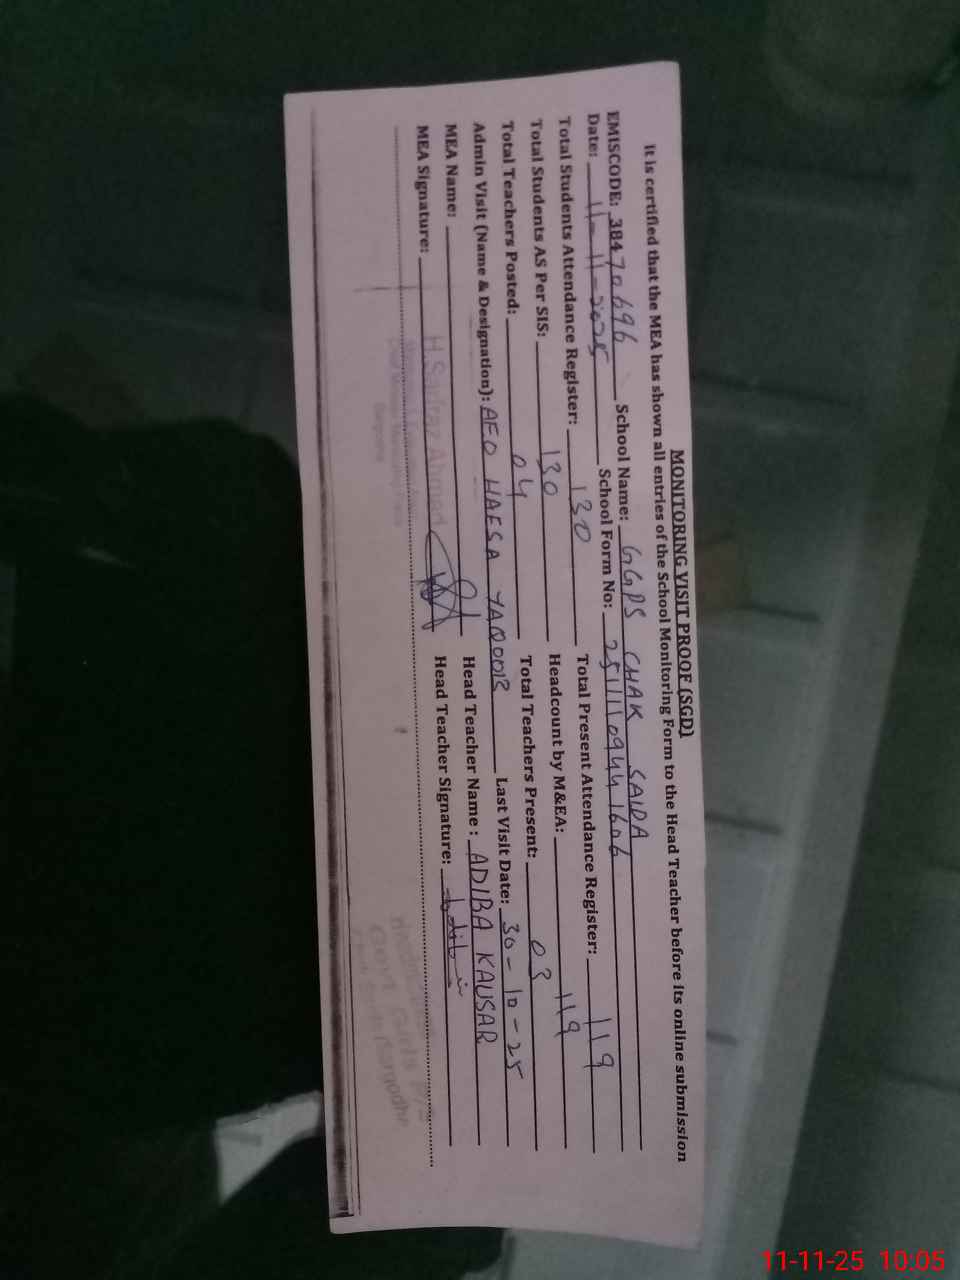 MONITORING VISIT PROOF (SGD)
It is certified that the MEA has shown all entries of the School Monitoring Form to the Head Teacher before its online submission
EMISCODE: 38470696 School Name: GGPS CHAK SAIDA
Date: 11-11-2025 School Form No: 25111109441606
Total Students Attendance Register: 130 Total Present Attendance Register: 119
Total Students AS Per SIS: 130 Headcount by M&EA: 119
Total Teachers Posted: 04 Total Teachers Present: 03
Admin Visit (Name & Designation): AEO HAFSA YAQOOB Last Visit Date: 30-10-25
MEA Name: Head Teacher Name: ADIBA KAUSAR
MEA Signature: Head Teacher Signature:
H.Sarfraz Ahmad
11-11-25 10:05